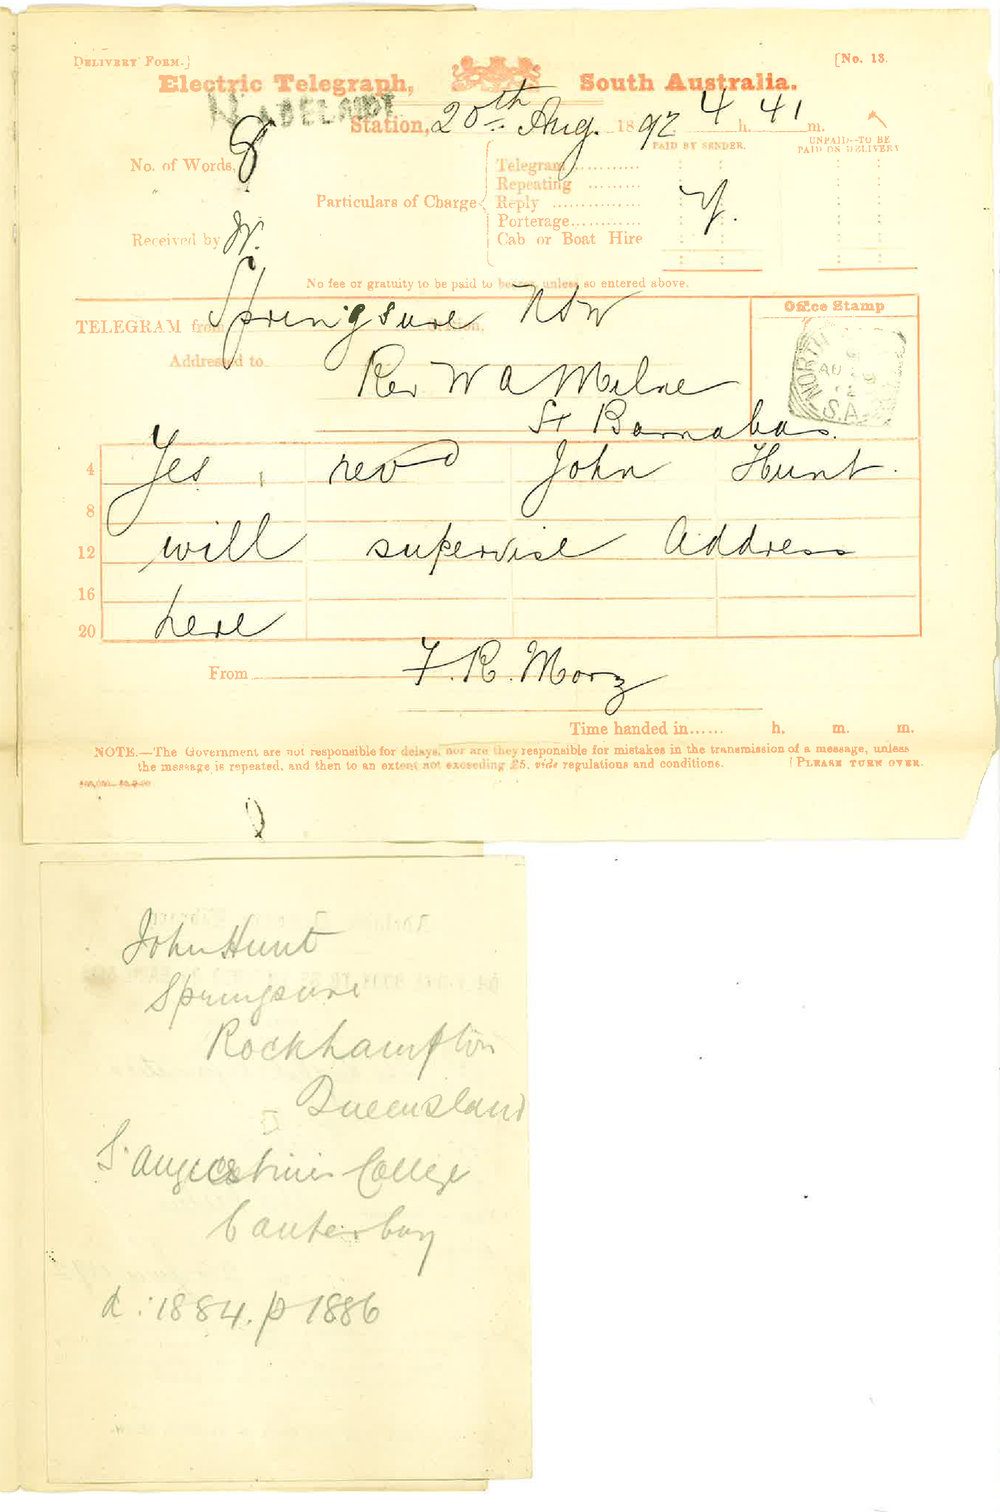 DELIVERY FORM.] [No. 13.
Electric Telegraph, South Australia.
N. ADELAIDE
Station, 20th Aug. 1892 4 h. 41 m.
No. of Words, 8
PAID BY SENDER. UNPAID—TO BE PAID ON DELIVERY
Particulars of Charge
Telegram
Repeating
Reply
Porterage
Cab or Boat Hire
Received by W.
No fee or gratuity to be paid to bearer unless so entered above.
TELEGRAM from Springsure NSW Station.
Office Stamp
NORTH
AU
S.A
Addressed to Rev W A Milne
St Barnabas.
4 Yes, revd John Hunt.
8
12 will supervise Address
16
20 here
From F. R. Morz
Time handed in...... h. m. m.
NOTE.—The Government are not responsible for delays, nor are they responsible for mistakes in the transmission of a message, unless
the message is repeated, and then to an extent not exceeding £5, vide regulations and conditions. [PLEASE TURN OVER.
John Hunt
Springsure
Rockhampton
Queensland
S. Augustine's College
Canterbury
d: 1884. p 1886